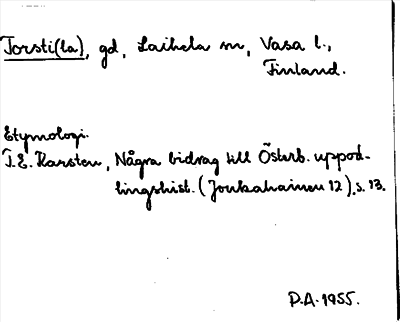 Torsti(la), gd, Laihela sn, Vasa l.,
Finland.
Etymologi.
T.E. Karsten, Några bidrag till Österb. uppod-
lingshist. (Joukahainen 12), s. 13.
P.A. 1955.